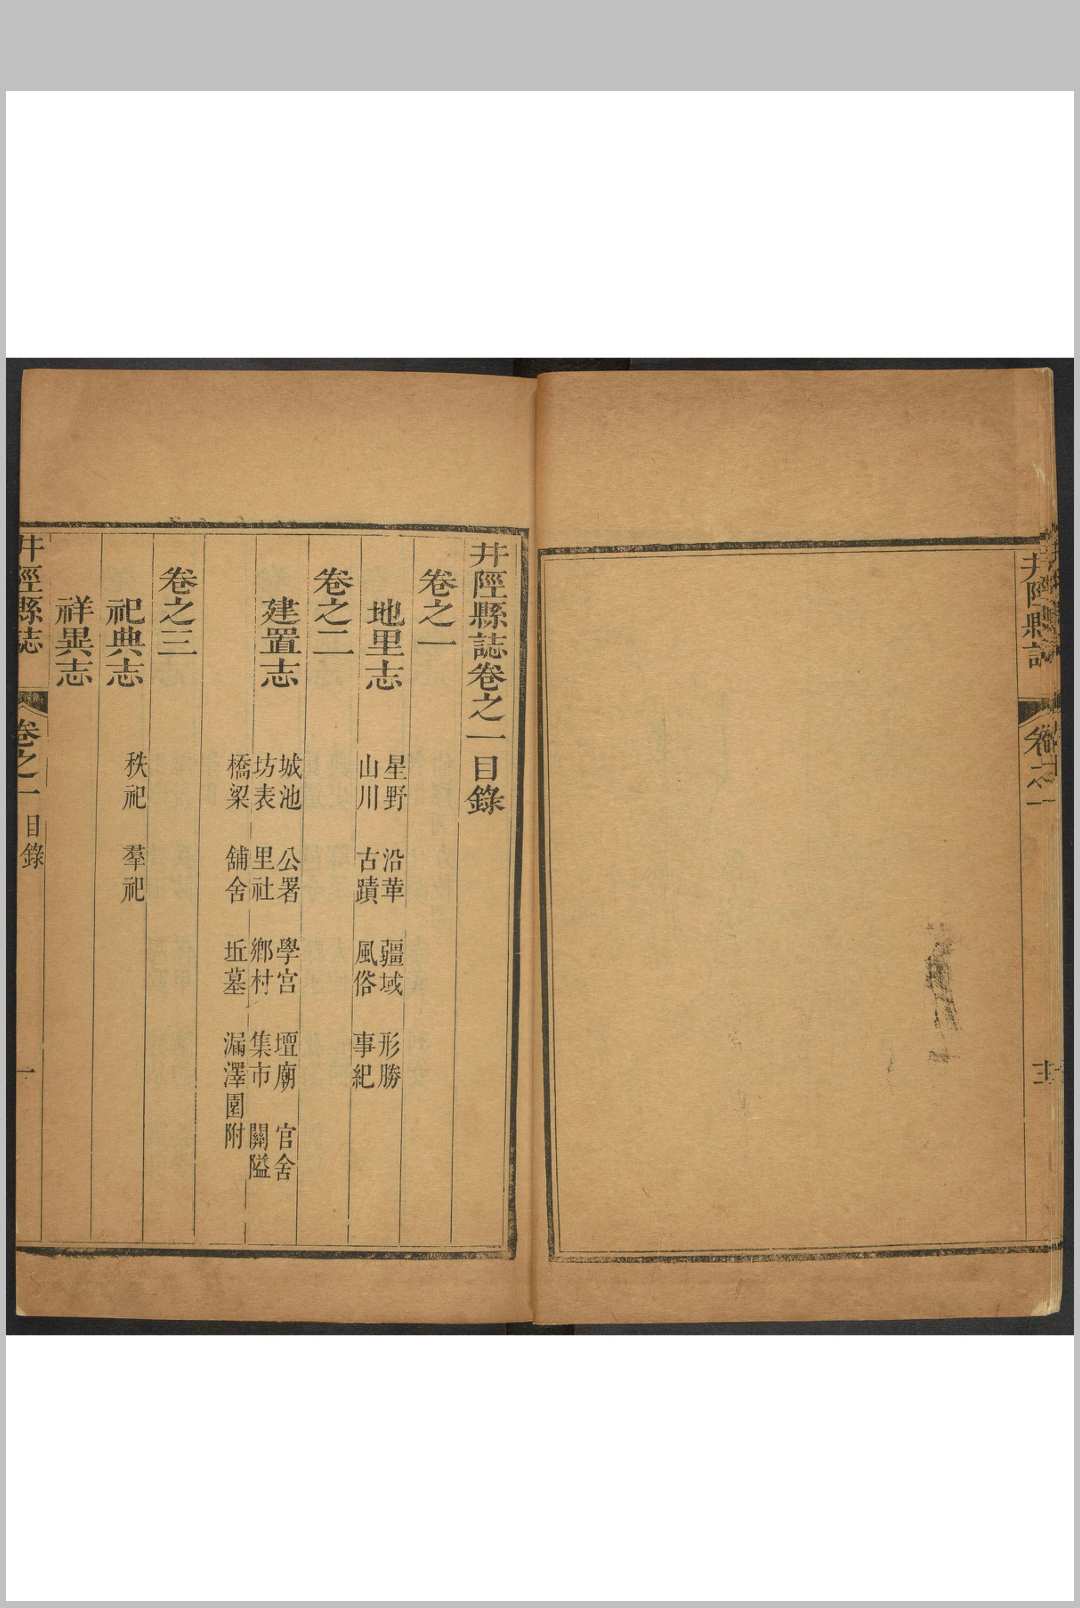 井陘縣誌
卷之一
井陘縣誌卷之一目錄
卷之一
地里志
星野 沿革 疆域 形勝
山川 古蹟 風俗 事紀
卷之二
建置志
城池 公署 學宮 壇廟 官舍
坊表 里社 鄉村 集市 關隘
橋梁 舖舍 坵墓 漏澤園附
卷之三
祀典志
秩祀 羣祀
祥異志
井陘縣誌 卷之一 目錄 一